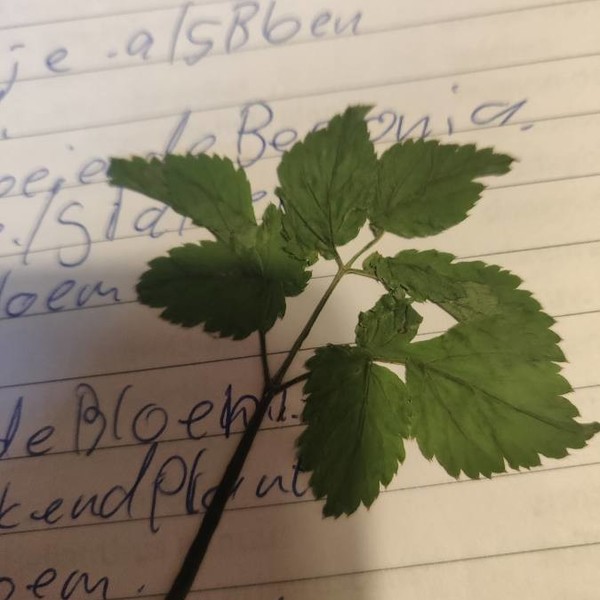 je .als Bben
oeiende Begonia.
loem
de Bloem.
kend Plant
oem.